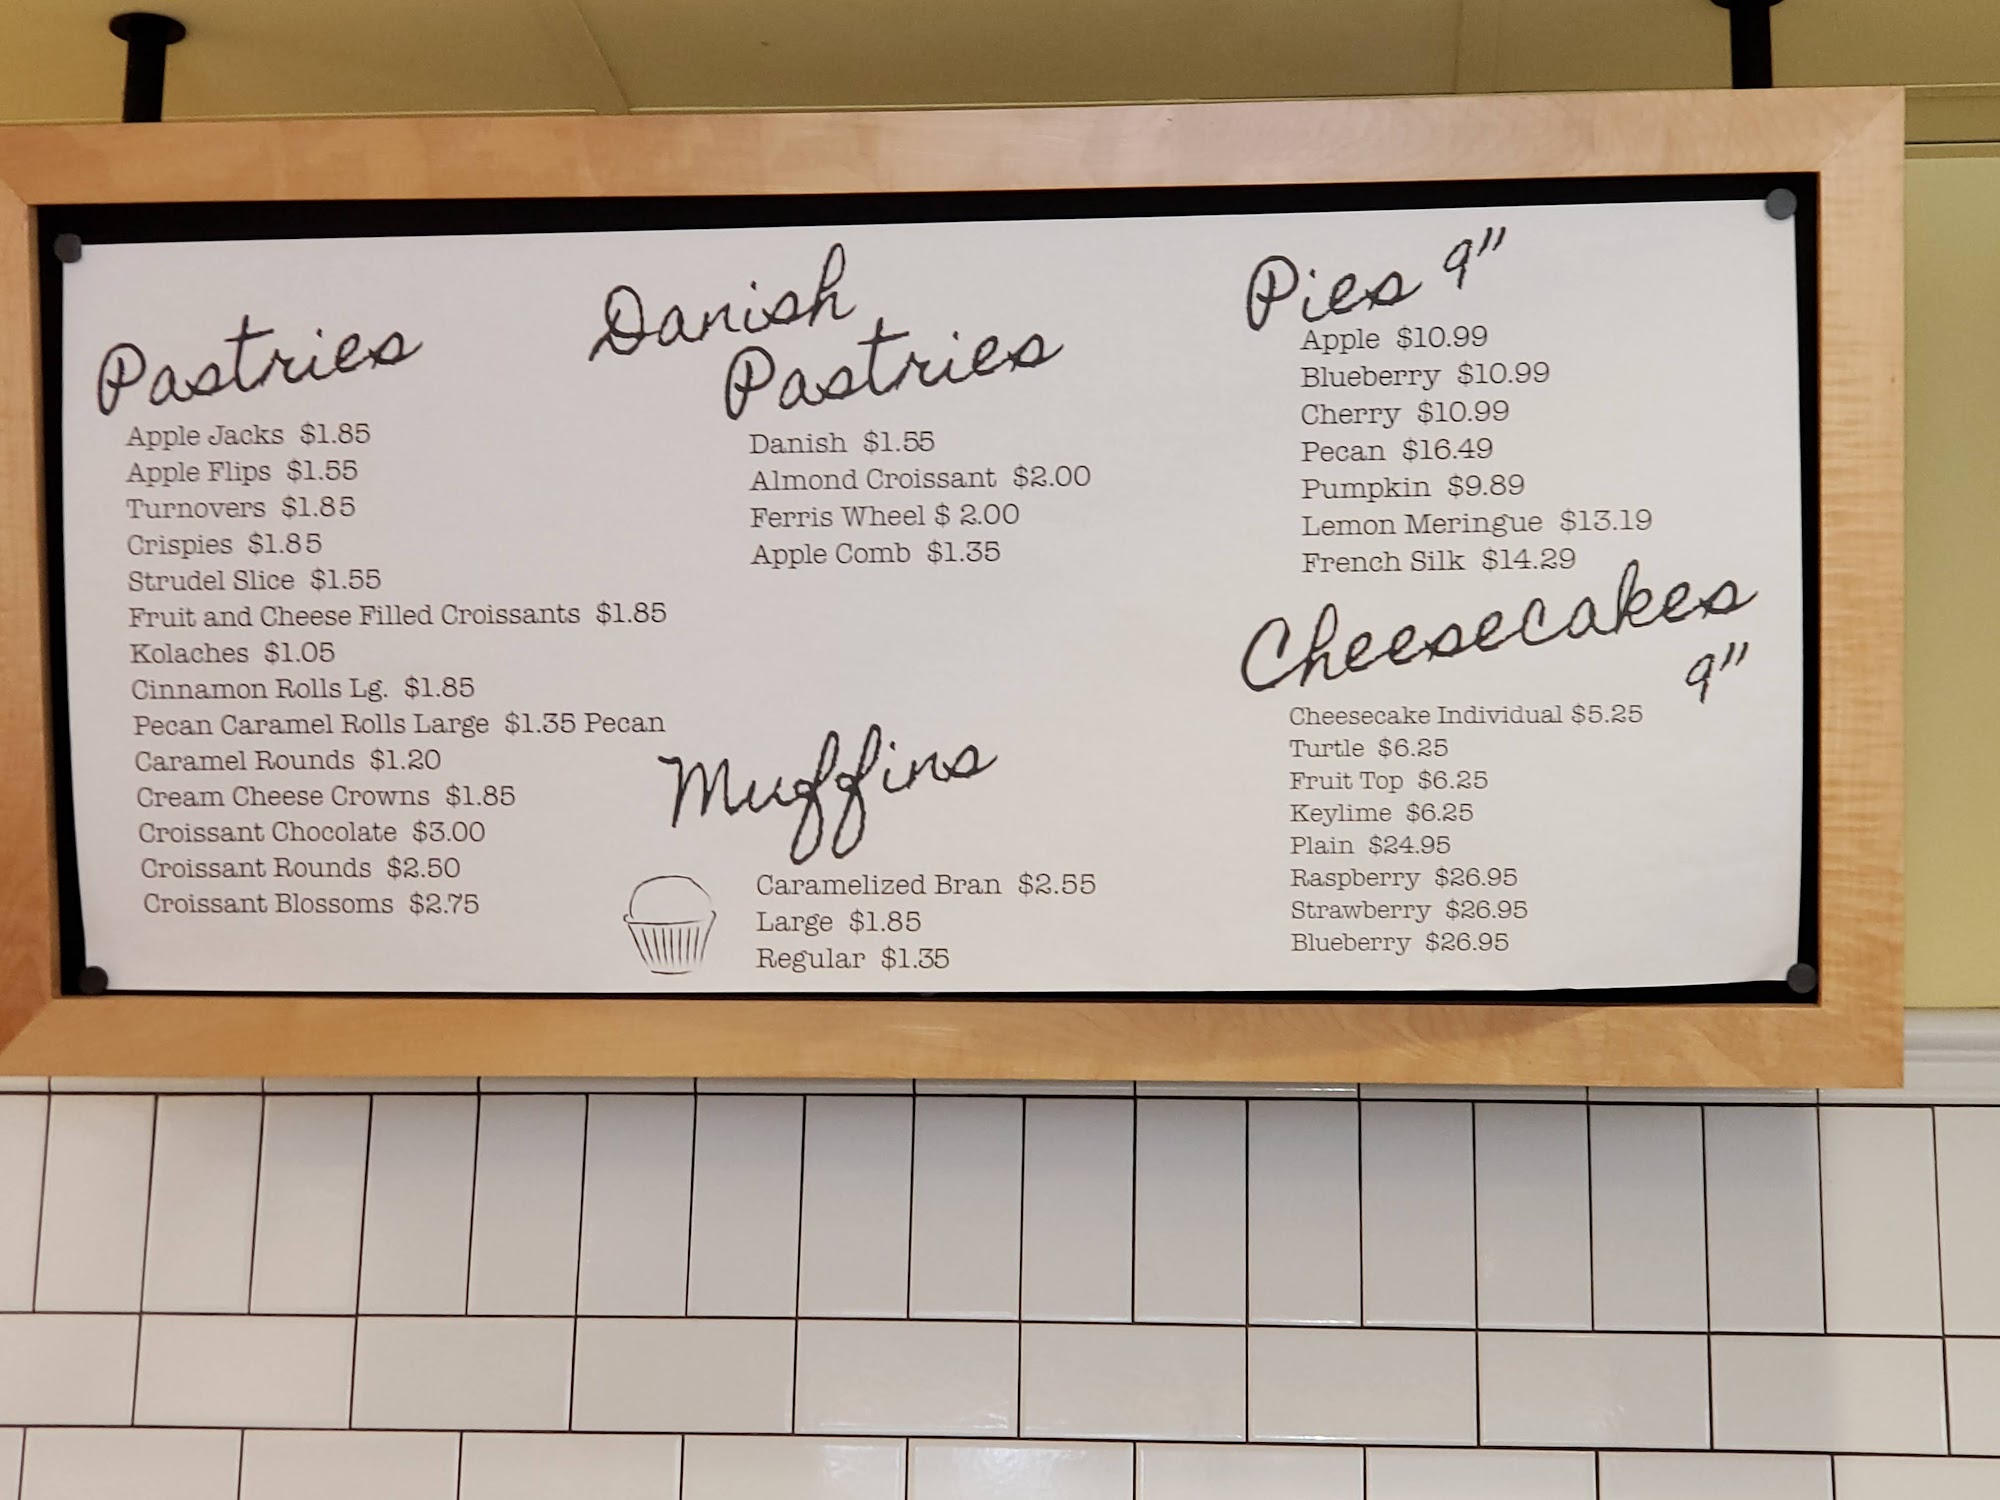 Pastries
Apple Jacks $1.85
Apple Flips $1.55
Turnovers $1.85
Crispies $1.85
Strudel Slice $1.55
Fruit and Cheese Filled Croissants $1.85
Kolaches $1.05
Cinnamon Rolls Lg. $1.85
Pecan Caramel Rolls Large $1.35 Pecan
Caramel Rounds $1.20
Cream Cheese Crowns $1.85
Croissant Chocolate $3.00
Croissant Rounds $2.50
Croissant Blossoms $2.75
Danish
Pastries
Danish $1.55
Almond Croissant $2.00
Ferris Wheel $ 2.00
Apple Comb $1.35
Muffins
Caramelized Bran $2.55
Large $1.85
Regular $1.35
Pies 9"
Apple $10.99
Blueberry $10.99
Cherry $10.99
Pecan $16.49
Pumpkin $9.89
Lemon Meringue $13.19
French Silk $14.29
Cheesecakes
9"
Cheesecake Individual $5.25
Turtle $6.25
Fruit Top $6.25
Keylime $6.25
Plain $24.95
Raspberry $26.95
Strawberry $26.95
Blueberry $26.95